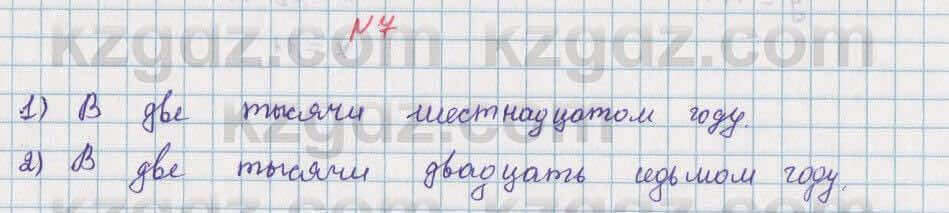 №7
1) В две тысячи шестнадцатом году.
2) В две тысячи двадцать седьмом году.
kzgdz.com kzgdz.com
kzgdz.com